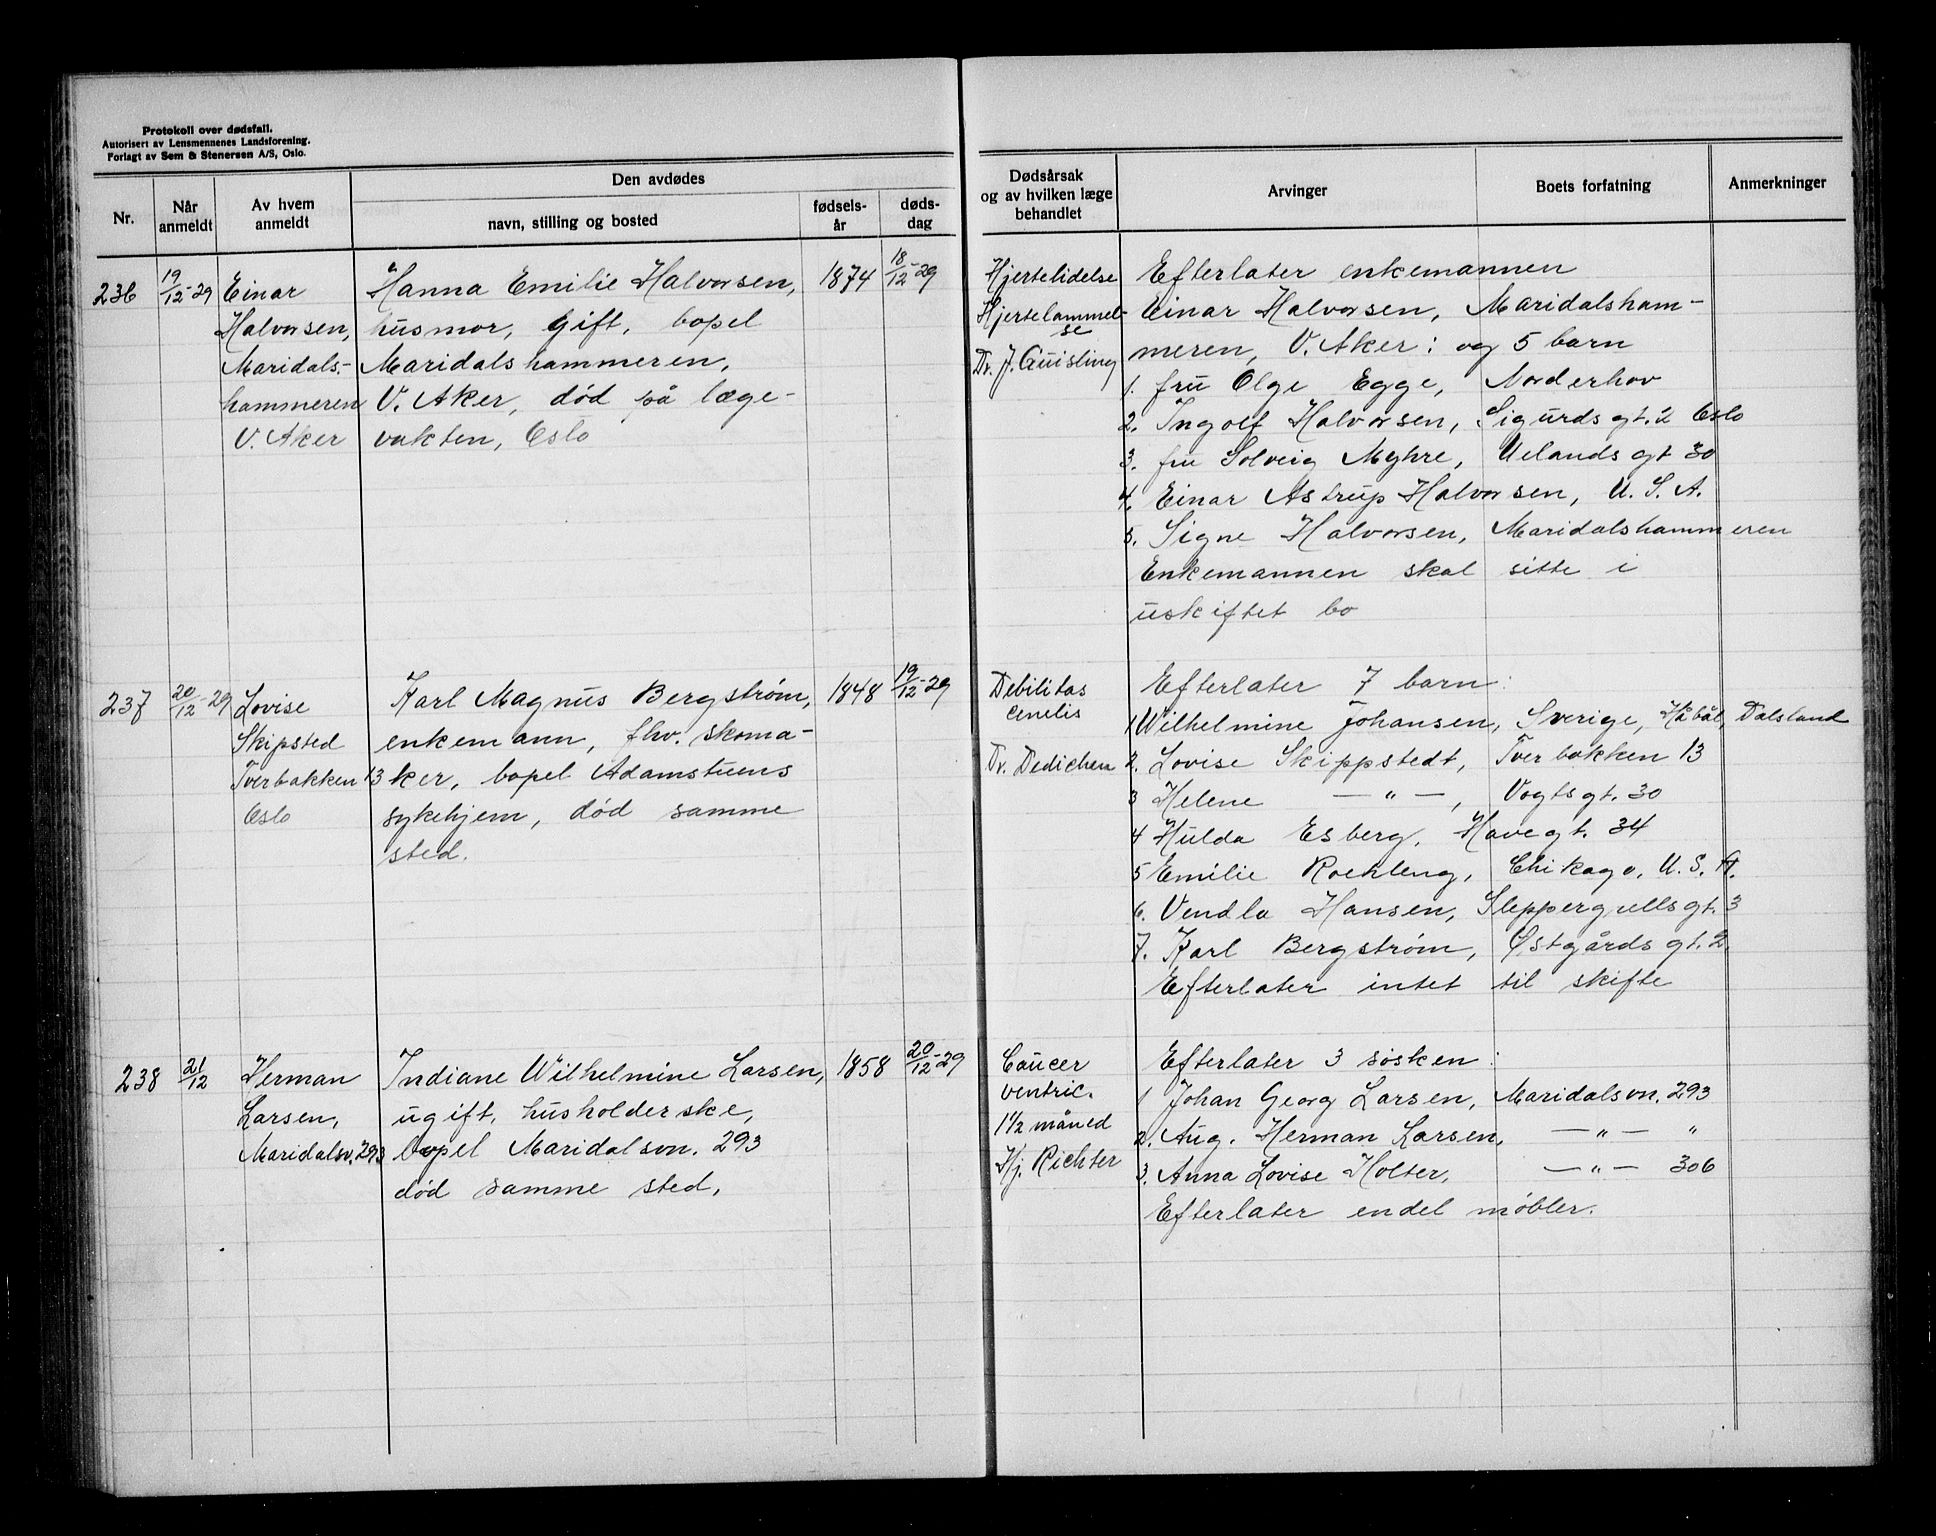 Protokoll over dødsfall.
Autorisert av Lensmennenes Landsforening.
Forlagt av Sem & Stenersen A/S, Oslo.
Nr.
Når anmeldt
Av hvem anmeldt
Den avdødes
navn, stilling og bosted
fødselsår
dødsdag
Dødsårsak og av hvilken læge behandlet
Arvinger
Boets forfatning
Anmerkninger
236
19/12-29
Einar
Halvorsen,
Maridals-
hammeren
V. Aker
Hanna Emilie Halvorsen,
husmor, gift, bopel
Maridalshammeren,
V. Aker, død på læge-
vakten, Oslo
1874
18/12-29
Hjertelidelse
Hjertelammel-
se
Dr. J. Quisling
Efterlater enkemannen
Einar Halvorsen, Maridalsham-
meren, V. Aker: og 5 barn
1. fru Olge Egge, Norderhov
2. Ingolf Halvorsen, Sigurds gt. 2 Oslo
3. fru Solveig Myhre, Uelands gt 30
4. Einar Astrup Halvorsen, U. S. A.
5. Signe Halvorsen, Maridalshammeren
Enkemannen skal sitte i
uskiftet bo
237
20/12-29
Lovise
Skipsted
Tverbakken 13
Oslo
Karl Magnus Bergstrøm,
enkemann, fhv. skoma-
ker, bopel Adamstuens
sykehjem, død samme
sted.
1848
19/12-29
Debilitas
cenelis
Dr. Dedichen
Efterlater 7 barn:
1 Wilhelmine Johansen, Sverige, Håbål, Dalsland
2. Lovise Skippstedt, Tverbakken 13
3 Helene — " —, Vogts gt. 30
4 Hulda Esberg, Havegt. 34
5 Emilie Roehleng, Chikago, U. S. A.
6. Vendla Hansen, Sleppergrellsgt. 3
7. Karl Bergstrøm, Østgårds gt. 2.
Efterlater intet til skifte
238
21/12
Herman
Larsen,
Maridalsv. 293
Indiane Wilhelmine Larsen,
ugift, husholderske,
bopel Maridalsvn. 293
død samme sted,
1858
20/12-29
Cancer
ventric.
1 1/2 måned
Hj. Richter
Efterlater 3 søsken:
1 Johan Georg Larsen, Maridalsvn. 293
2. Aug. Herman Larsen, — " — "
3. Anna Lovise Holter, — " — 306
Efterlater endel møbler.